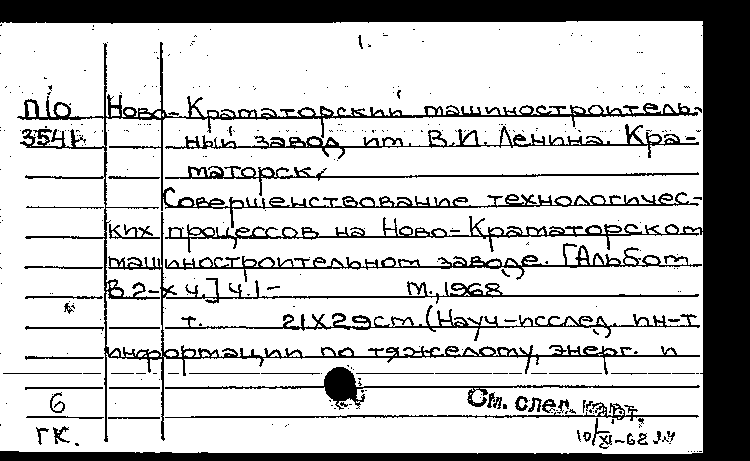 1.
П/О Ново-Краматорский машиностроитель-
3541 ный завод им. В.И. Ленина. Кра-
маторск.
Совершенствование технологичес-
ких процессов на Ново-Краматорском
машиностроительном заводе. [Альбом
В 2-х ч.] ч.1-
М., 1968
т. 21х29см. (Науч-исслед. ин-т
информации по тяжелому, энерг. и
6 См. след. карт.
ГК. 10/XI-68